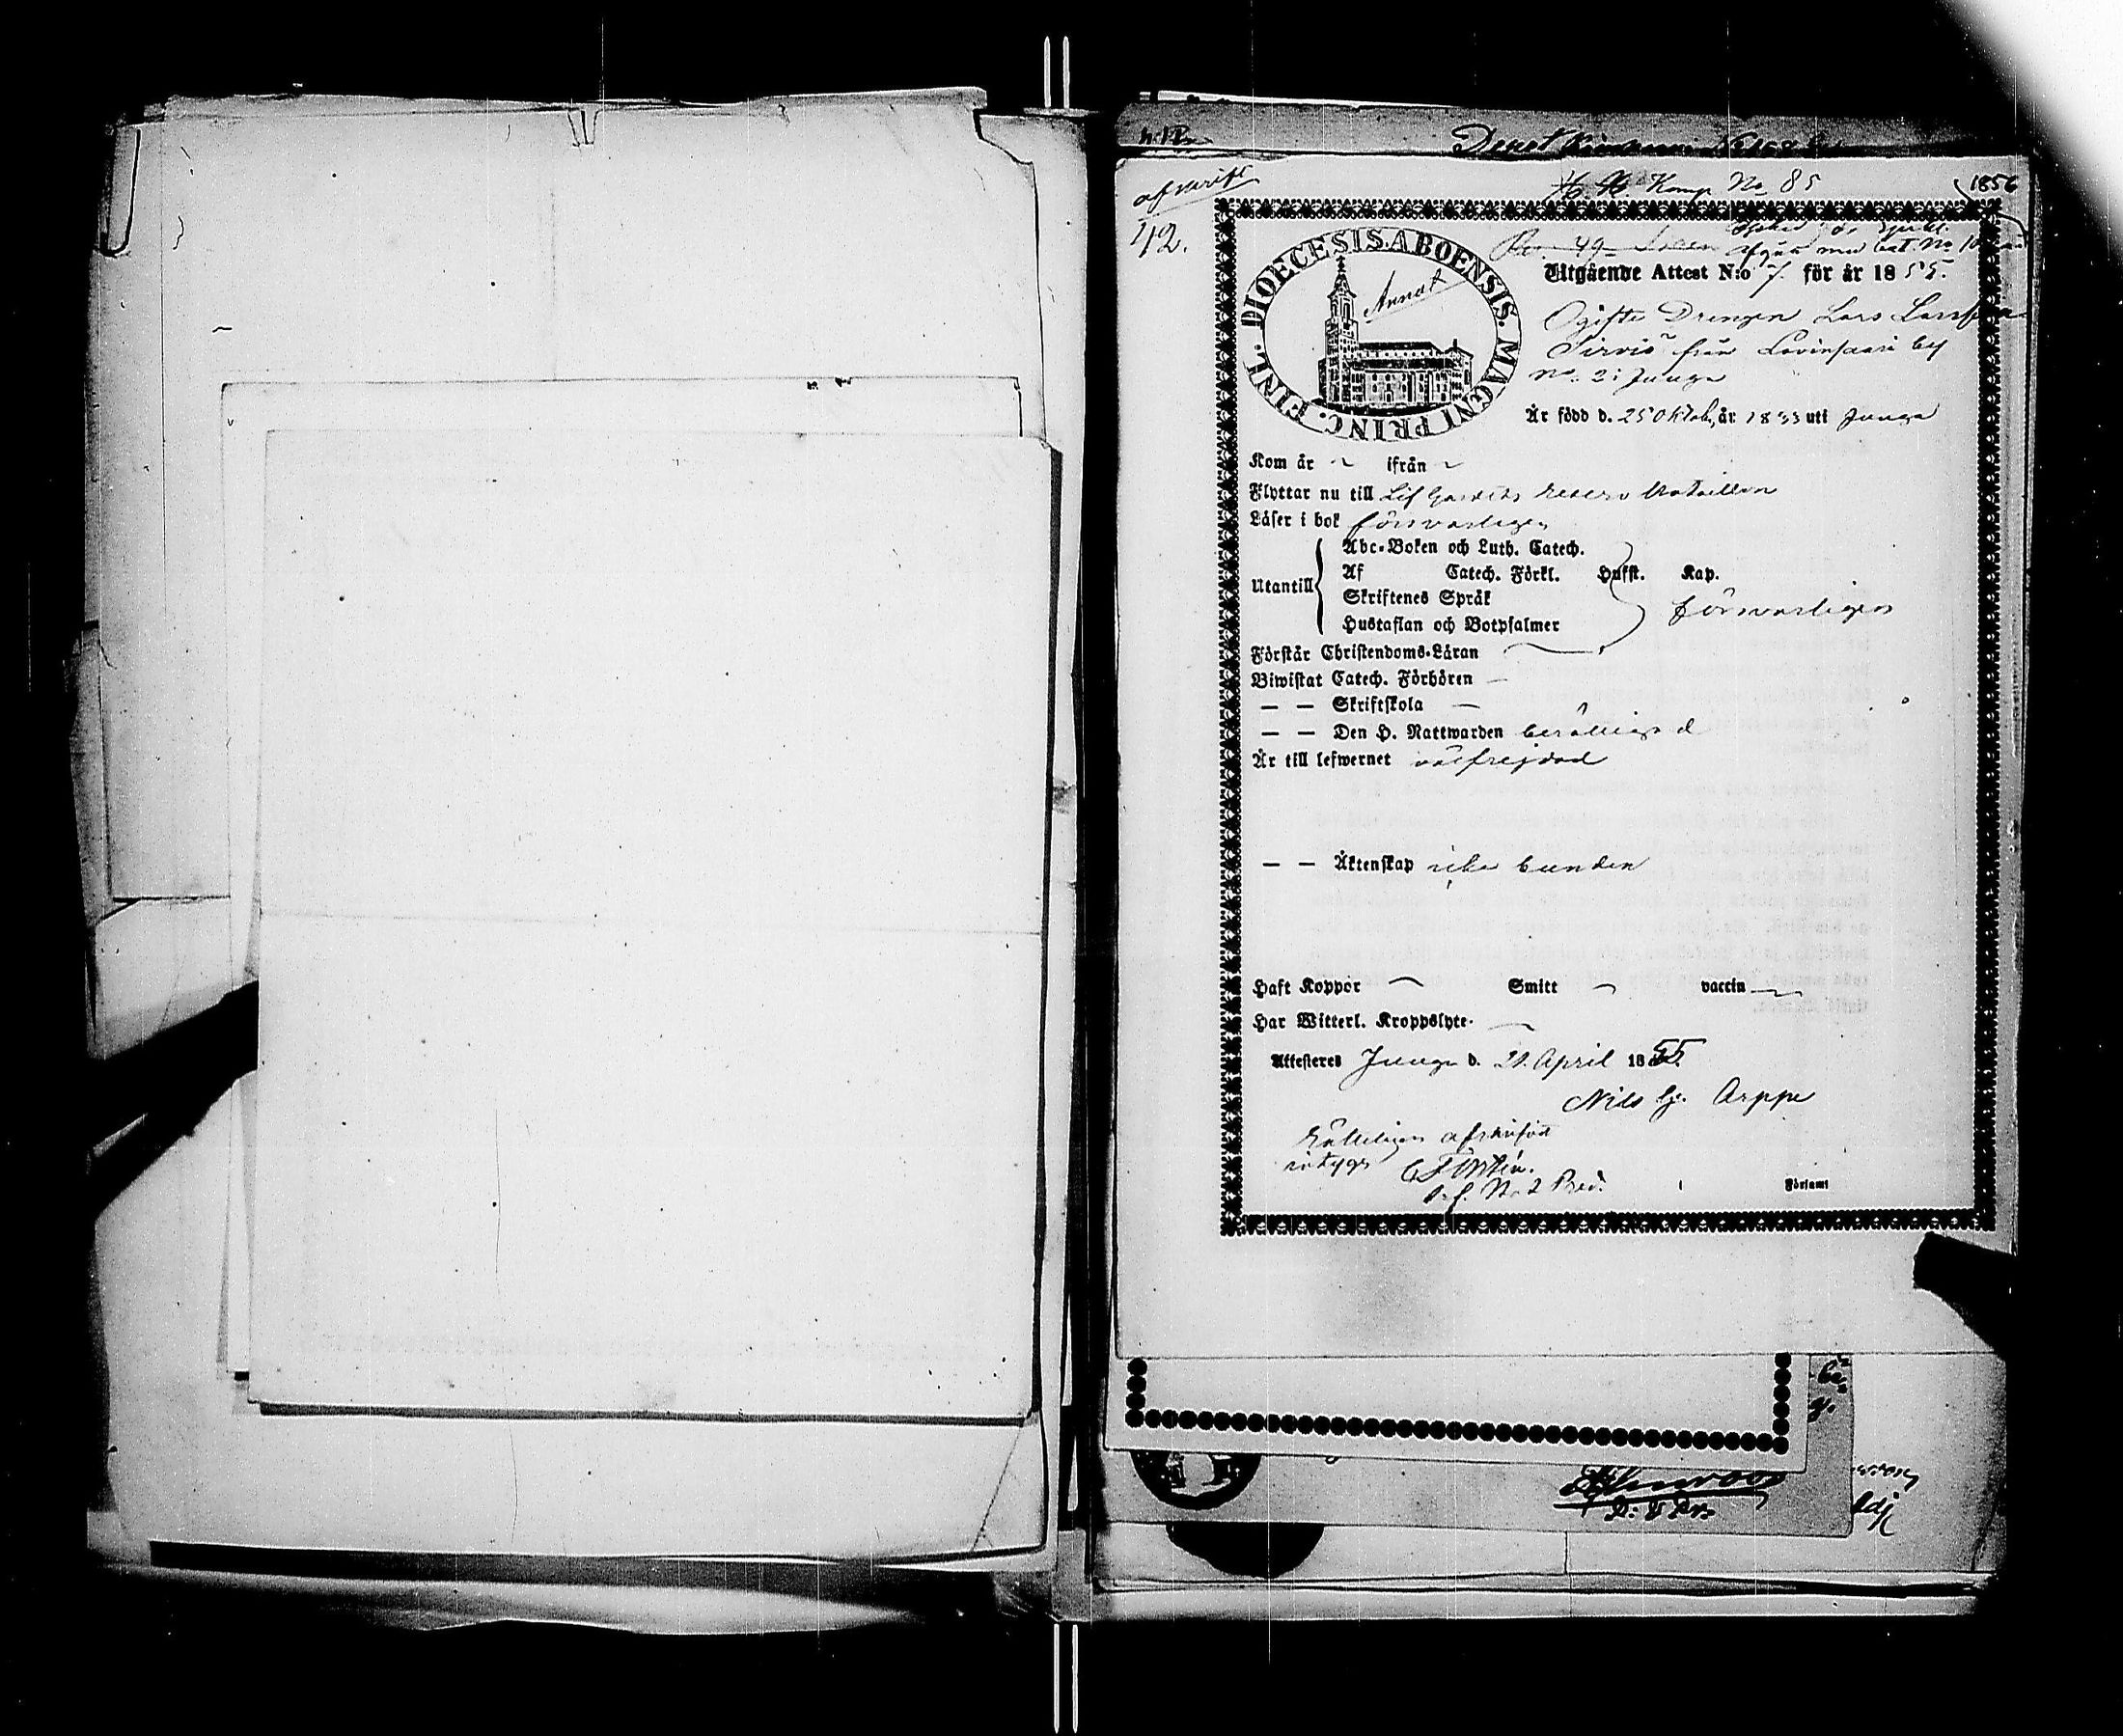 afskrift
42.
Komp No 85
1856
49
DIOECESIS ABOENSIS. MAGNI PRINC. FINL.
Annat
Utgående Attest N:o 7 för år 1855.
Ogifte Drengen Lars Larsson
Sirviö från Lovinsaari by
No: 2 i Junga
Är född d. 25 Oktob, år 1833 uti Junga
Kom år ~ ifrån ~
Flyttar nu till Lif Gardets reserv Bataillon
Läser i bok försvarligen
Utantill
Abc-Boken och Luth. Catech.
Af Catech. Förkl. Hufst. Kap.
Skriftenes Språk
Hustaflan och Botpsalmer
försvarligen
Förstår Christendoms-Läran
Biwistat Catech. Förhören —
— — Skriftskola —
— — Den H. Nattwarden berättigad
Är till lefwernet välfrejdad
— — Äktenskap icke bunden
Haft Koppor ~ Smitt ~ vaccin ~
Har Witterl. Kroppslyte. ~
Attesteres Junga d. 21. April 1855.
Nils G. Arppe
Rätteligen afskrifvit
intygar
No 2 Pred.
Församl